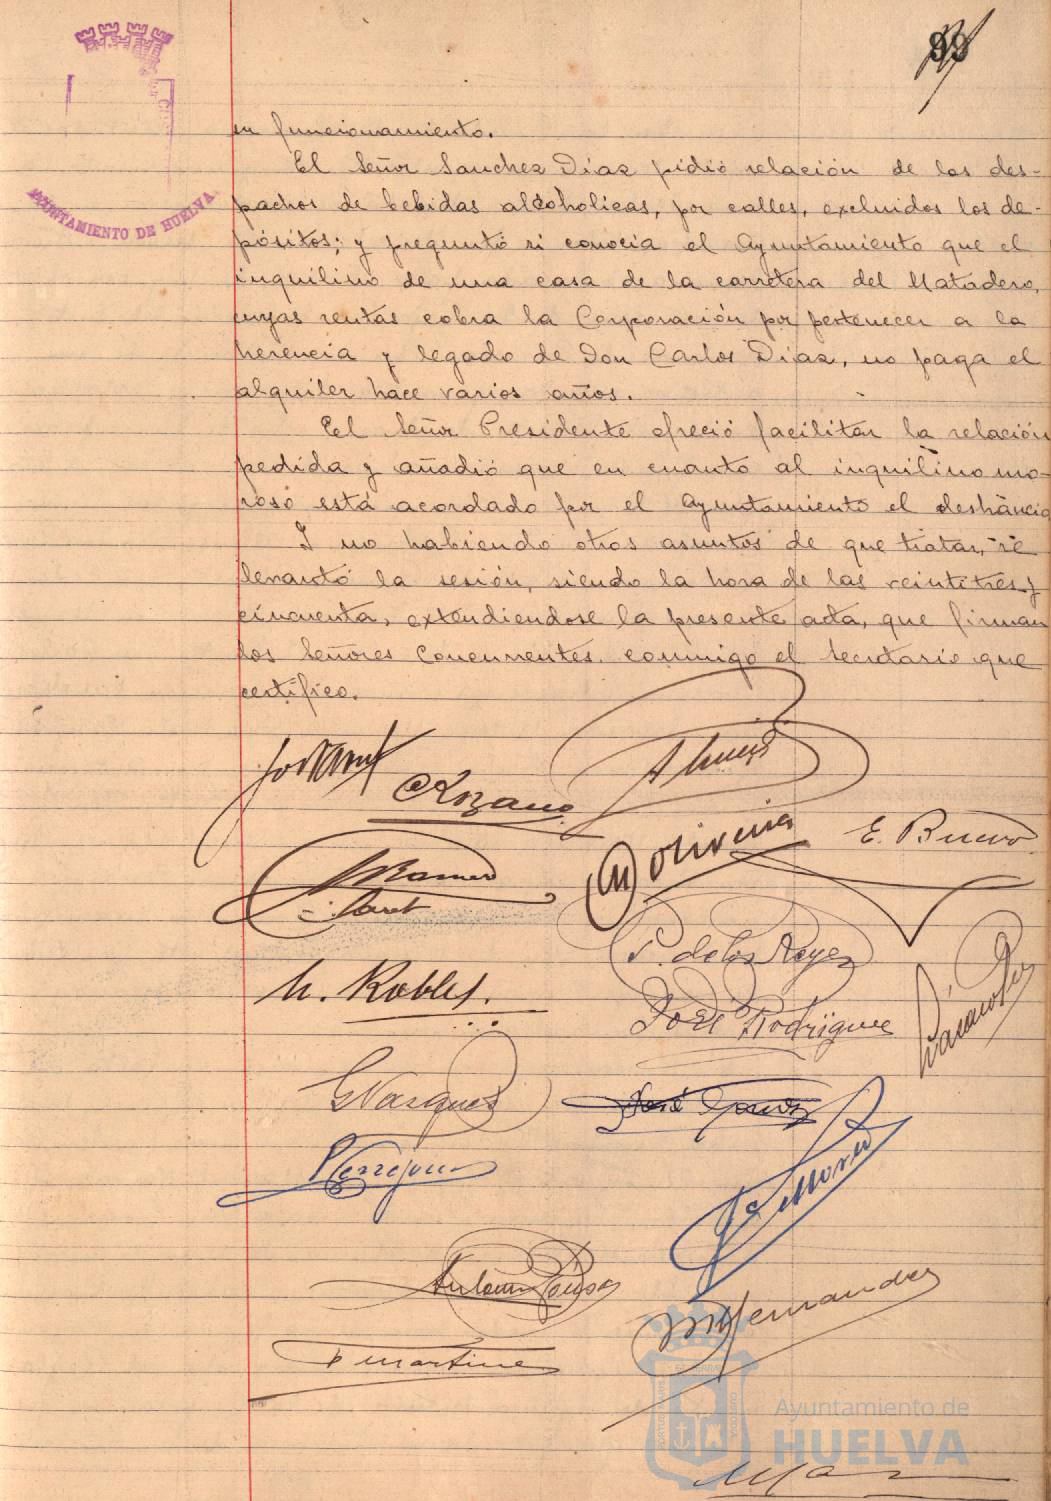 en funcionamiento.
El Señor Sanchez Díaz pidió relación de los des-
pachos de bebidas alcoholicas, por calles, excluidos los de-
pósitos; y preguntó si conocía el Ayuntamiento que el
inquilino de una casa de la carretera del Matadero,
cuyas rentas cobra la Corporación por pertenecer a la
herencia y legado de Don Carlos Díaz, no paga el
alquiler hace varios años.
El Señor Presidente ofreció facilitar la relación
pedida y añadió que en cuanto al inquilino mo-
roso está acordado por el Ayuntamiento el deshaucio
Y no habiendo otros asuntos de que tratar, se
levantó la sesión, siendo la hora de las veintitres y
cincuenta, extendiendose la presente acta, que firman
los Señores Concurrentes conmigo el Secretario que
certifico.
Lozano
Oliveira
E. Bueno
P. de los Reyes
M. Robles.
José Rodriguez
Vazquez
José
Hernandez
Martine
AYUNTAMIENTO DE HUELVA
Ayuntamiento de
HUELVA